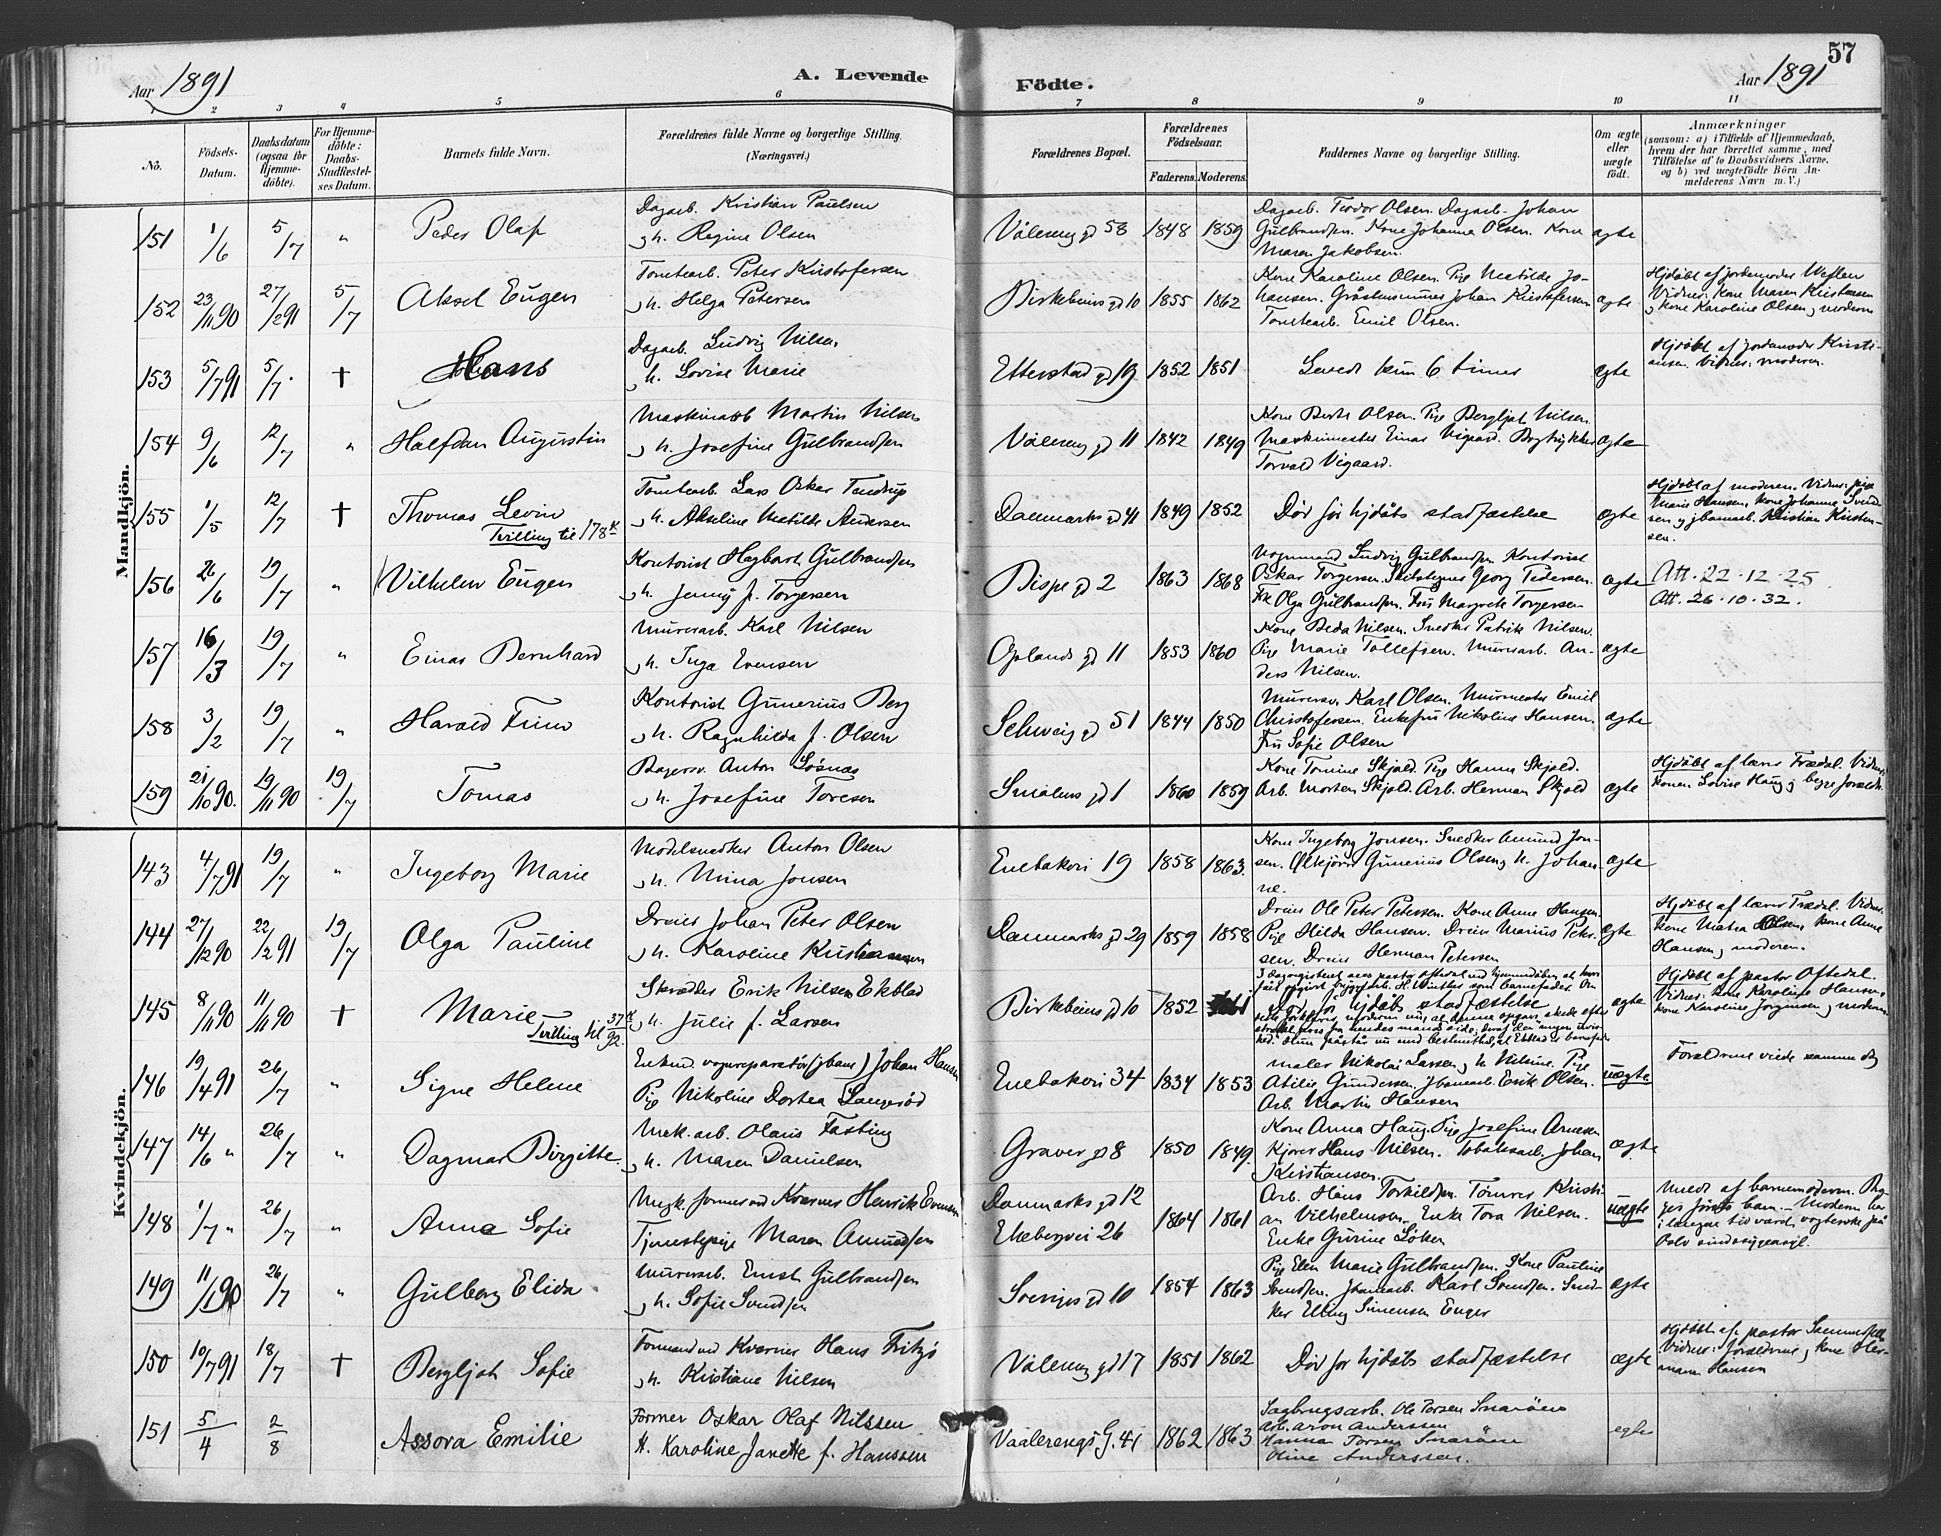 57
Aar 1891
A. Levende
Födte.
Aar 1891
1 2 3 4 5 6 7 8 9 10 11
No.
Födsels-Datum.
Daabsdatum (ogsaa for Hjemme-döbte).
For Hjemme-döbte: Daabs-Stadfæstel-ses Datum.
Barnets fulde Navn.
Forældrenes fulde Navne og borgerlige Stilling. (Næringsvei.)
Forældrenes Bopæl.
Forældrenes Födselsaar.
Faderens. Moderens.
Faddernes Navne og borgerlige Stilling.
Om ægte eller uægte födt.
Anmærkninger
(saasom: a) i Tilfælde af Hjemmedaab, hvem der har forrettet samme, med Tilföielse af to Daabsvidners Navne, og b) ved uægtefödte Börn An-melderens Navn m. V.)
Mandkjön.
151 1/6 5/7 " Peder Olaf
Dagarb. Kristian Paulsen
og h. Regine Olsen
Vålereng gd 58 1848 1859
Dagarb. Teodor Olsen. Dagarb. Johan
Gulbrandsen. Kone Johanne Olsen. Kone
Maren Jakobsen.
ægte
152 23/11 90 27/2 91 5/7 Aksel Eugen
Tomtearb. Peter Kristofersen
og h. Helga Petersen
Birkebeins gd 10 1855 1862
Kone Karoline Olsen. Pige Matilde Jo-
hansen. Johan Kristofersen
Tomtearb. Emil Olsen.
ægte
Hjdöbt af jordemoder
Vidner: kone Maren Kristensen
og kone Karoline Olsen, moderen
153 5/7 91 5/7 † Hans
Dagarb. Ludvig Nilsen
og h. Lovise Marie
Etterstad gd 19 1852 1851
Levede kun 6 timer
ægte
Hjdöbt af jordemoder Kristi-
ansen. Vidner: moderen.
154 9/6 12/7 " Halfdan Augustin
Maskinarb Martin Nilsen
og h. Josefine Gulbrandsen
Vålereng gd 11 1842 1849
Kone Berte Olsen. Pige Bergljot Nilsen.
Maskinmester Einar Vigaard. Bogtrykker
Torvald Vigaard.
ægte
155 1/5 12/7 † Thomas Levin
Tvilling til 178 k
Tomtearb. Lars Oskar Tendrup
og h. Akseline Matilde Andersen
Danmarks gd 41 1849 1852
Död för hjdåbs stadfæstelse
ægte
Hjdöbt af moderen. Vidner: pige
Marie Hansen, kone Johanne Svend-
sen og jbanearb. Kristian Kristen-
sen.
156 26/6 19/7 " Vilhelm Eugen
Kontorist Hagbart Gulbrandsen
og h. Jenny f. Torgersen
Bispe gd 2 1863 1868
Vognmand Ludvig Gulbrandsen. Kontorist
Oskar Torgersen. Georg Pedersen.
Frk Olga Gulbrandsen. Frk Margrete Torgersen
ægte
Att. 22-12-25
Att. 26.10.32.
157 16/3 19/7 " Einar Bernhard
Murerarb. Karl Nilsen
og h. Inga Evensen
Oplands gd 11 1853 1860
Kone Beda Nilsen. Snedker Patrik Nilsen.
Pige Marie Tollefsen. Murerarb. An-
ders Nilsen.
ægte
158 3/2 19/7 " Harald Finn
Kontorist Gunerius Berg
og h. Ragnhilda f. Olsen
Schweig gd 51 1844 1850
Murersv. Karl Olsen. Murmester Emil
Christofersen. Enkefru Nikoline Hansen.
Fru Sofie Olsen
ægte
159 21/10 90. 19/11 90 19/7 Tomas
Bagersv. Anton Lösnæs
og h. Josefine Toresen
Smålens gd 1 1860 1859
Kone Tomine Skjold. Pige Hanna Skjold.
Arb. Morten Skjold. Arb. Herman Skjold
ægte
Hjdöbt af lærer Trædal. Vidner:
konen Lovise Haug, begge foreldre.
Kvindekjön.
143 4/7 91 19/7 " Ingeborg Marie
Modelsnedker Anton Olsen
og h. Mina Jonsen
Enebakvei 19 1858 1863.
Kone Ingeborg Jonsen. Snedker Amund Jon-
sen. Ölkjörer Gunerius Olsen og h. Johan-
ne.
ægte
144 27/12 90 22/2 91 19/7 Olga Pauline
Dreier Johan Peter Olsen
og h. Karoline Kristiansen
Danmarks gd 29 1859 1858
Dreier Ole Peter Petersen. Kone Anne Hansen.
Pige Hilda Hansen. Dreier Marius Peter-
sen. Dreier Herman Petersen
ægte
Hjdöbt af lærer Trædal. Vidner:
kone Matea Olsen, kone Anne
Hansen, moderen.
145 8/11 90 11/11 90 † Marie
Tvilling til 37 k/92.
Skrædder Erik Nilsen Ekblad
og h. Julie f. Larsen
Birkebeins gd 10 1852
Död för hjdåbs stadfæstelse
ægte
Hjdöbt af pastor Oftedal.
Vidner: kone Karoline Hansen,
kone Karoline Jörginsen, moderen
146 19/4 91 26/7 " Signe Helene
Enkem. vognreparatör (jbane) Johan Hansen
Pige Nikoline Dortea Langeröd
Enebakvei 34 1834 1853
Maler Nikolai Larsen, h. Nilsine. Pige
Atilie Gundersen. Jbanearb. Erik Olsen.
Arb. Martin Hansen
uægte
Forældrene viede samme dag
147 14/6 " 26/7 " Dagmar Birgitte
Mek. arb. Olaus Fasting
og h. Maren Danielsen
Graver gd 8 1850 1849.
Kone Anna Haug. Pige Josefine Arnesen
Kjörer Hans Nilsen. Tobaksarb. Johan
Kristiansen.
ægte
148 1/7 " 26/7 " Anna Sofie
Ungk. former ved Kværner Henrik Evensen
Tjenestepige Maren Amundsen
Danmarks gd 12
Ekebergvei 26
1864 1861
Arb. Hans Torkildsen. Tömrer Kristi-
an Vilhelmsen. Enke Tora Nilsen.
Enke Gurine Löken
uægte
Meldt af barnemoderen. Be-
ges förste barn. Moderen har
i længre tid været vogterske på
Oslo sindssygeasyl.
149 11/1 90 26/7 " Gulborg Elida
Murerarb. Ernst Gulbrandsen
og h. Sofie Svendsen
Sveriges gd 10 1854 1863
Pige Elen Marie Gulbrandsen. Kone Pauline
Svendsen. Jbanearb. Karl Svendsen. Sned-
ker Elling Simensen Enger
ægte
150 10/7 91 18/7 † Bergljot Sofie
Formand ved Kværner Hans Fritzö
og h. Kristiane Nilsen
Vålereng gd 17 1851 1862
Död för hjdåbs stadfæstelse
ægte
Hjdöbt af pastor
Vidner: foreldrene, kone Her-
mana Hansen
151 5/4 2/8 Assora Emilie
Former Oskar Olaf Nilssen
H. Karoline Janette f. Hanssen
Vaalerengs G. 41 1862 1863
Sagbrugsarb. Ole Torsen Snaröen
Arb. Aron Anderssen
Hanna Torsen Snaröen
Oline Anderssen.
egte